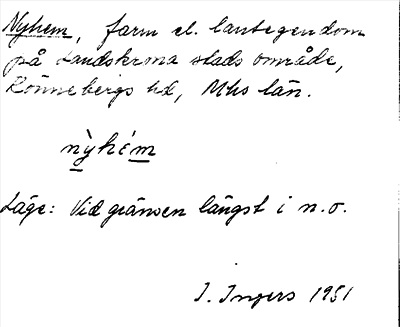 Nyhem, farm el. lantegendom
på Landskrona stads område,
Rönnebergs hd, Mhs län.
nỳhém
Läge: Vid gränsen längst i n.o.
I. Ingers 1951